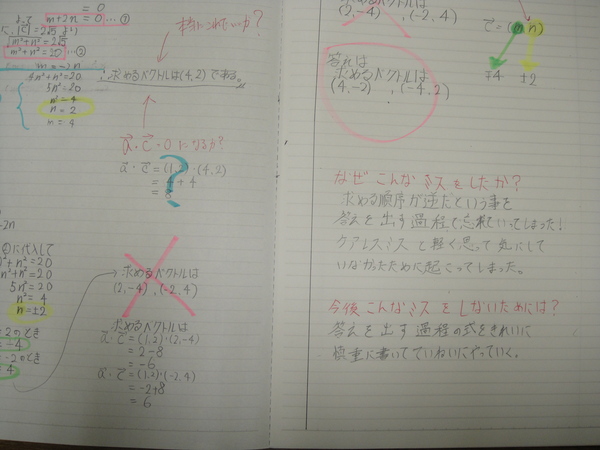 = 0
よって m+2n = 0 …①
に、|c|=2√5 より
√m²+n² = 2√5
m²+n² = 20 …②
m = -2n
4n²+n²=20
5n²=20
n²=4
n = 2
m = 4
本当にこれでいいか？
∴求めるベクトルは(4,2)である。
a・c=0になるか？
a・c = (1,2)・(4,2)
= 4+4
= 8
?
-2n
①に代入して
n²+n²=20
n²+n²=20
5n²=20
n²=4
n=±2
=2のとき
=-4
=-2のとき
4
求めるベクトルは
(2,-4),(-2,4)
求めるベクトルは
a・c = (1,2)・(2,-4)
= 2-8
= -6
a・c = (1,2)・(-2,4)
= -2+8
= 6
(2,-4),(-2,4)
c=(m n)
∓4 ±2
答えは
求めるベクトルは
(4,-2),(-4,2)
なぜこんなミスをしたか？
求める順序が逆だという事を
答えを出す過程で忘れていってしまった！
ケアレスミスと軽く思って気にして
いなかったために起こってしまった。
今後こんなミスをしないためには？
答えを出す過程の式をきれいに
慎重に書いてていねいにやっていく。